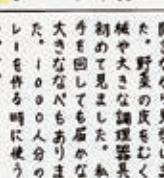 た。野菜の皮をむく
械や大きな調理器具
初めて見ました。私
手を回しても届かな
大きななべもありま
た。100人分の
レーを作る時に使う